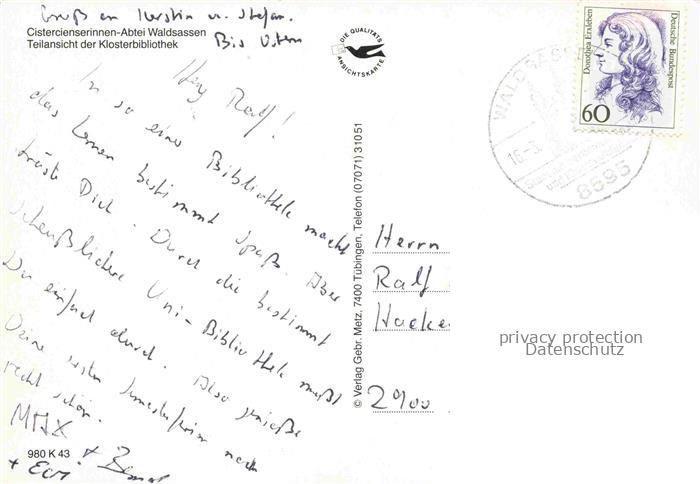 Gruß an Kerstin u. Stefan.
Bis Ostern
Cistercienserinnen-Abtei Waldsassen
Teilansicht der Klosterbibliothek
Hey Ralf!
In so einer Bibliothek macht
das Lernen bestimmt Spaß. Aber
tröste Dich. Durch die bestimmt
scheußlichere Uni-Bibliothek mußt
Du einfach durch. Also genieße
Deine ersten Semesterferien noch
recht schön.
MAX
+
980 K 43
+
DIE QUALITÄTS
ANSICHTSKARTE
© Verlag Gebr. Metz, 7400 Tübingen, Telefon (07071) 31051
WALDSASSE
16.-3.
8595
Dorothea Erxleben
Deutsche Bundespost
60
Herrn
Ralf
Hacke
2900
privacy protection
Datenschutz